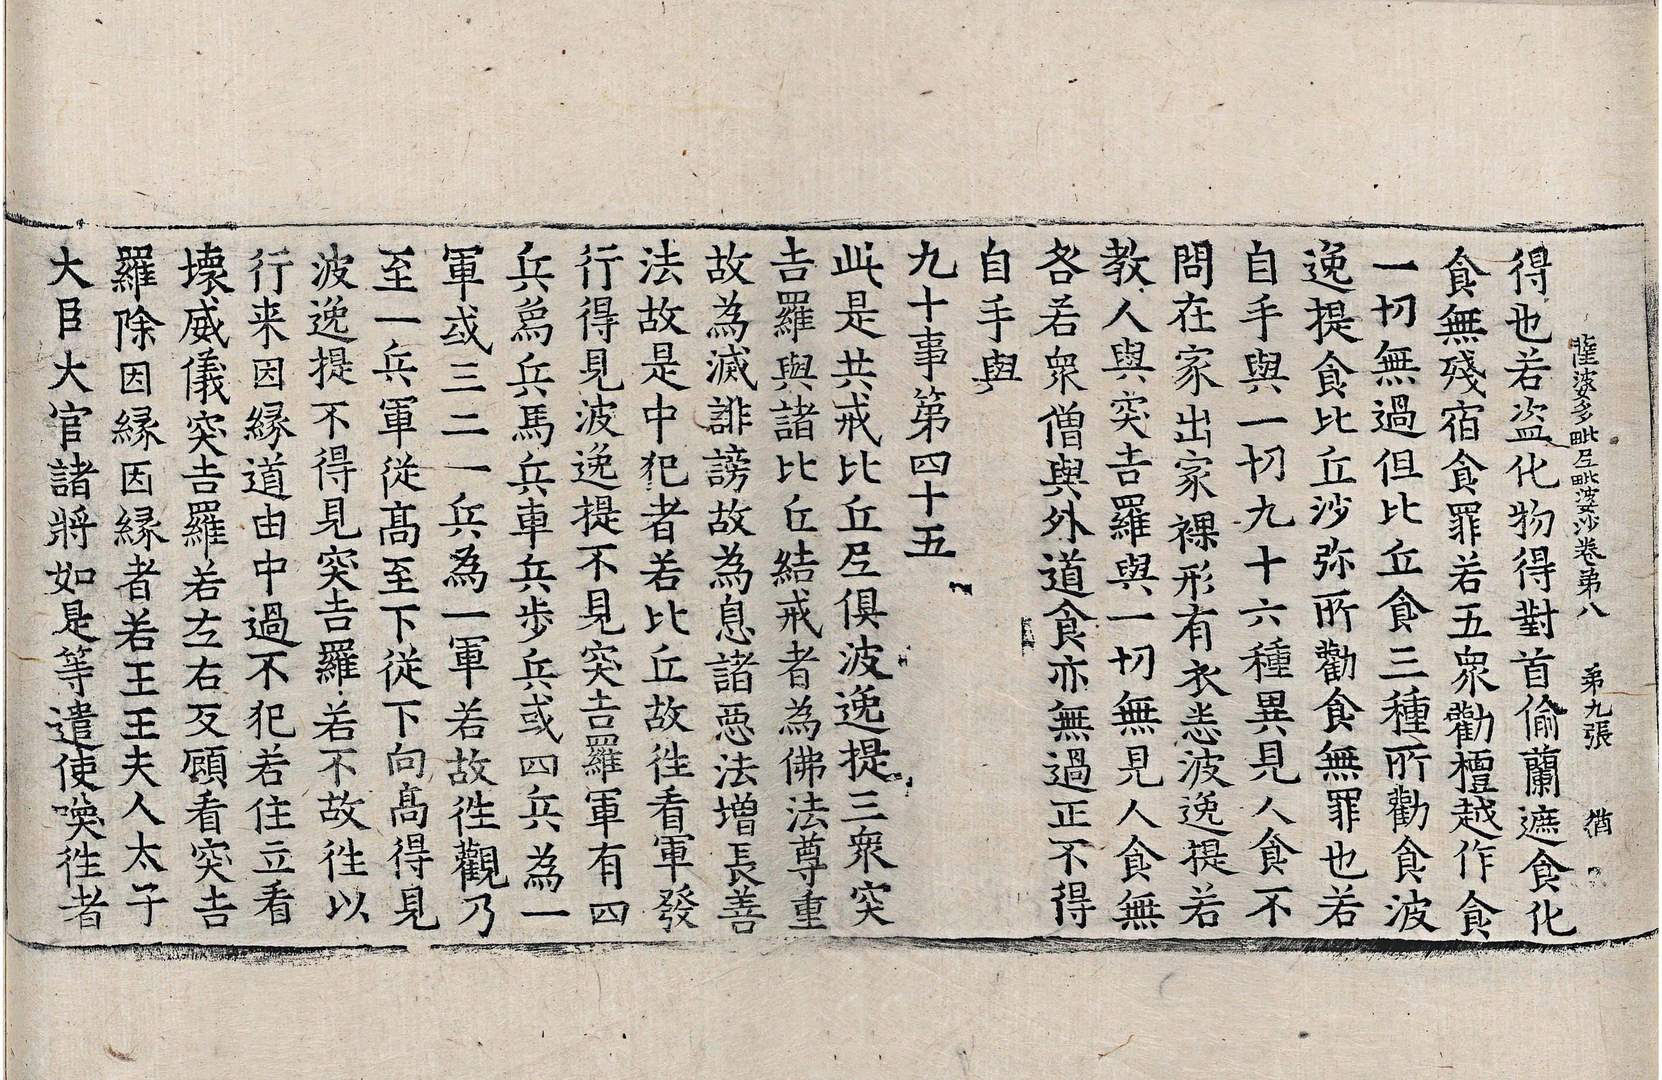 薩婆多毗尼毗婆沙卷弟八 弟九張 猶
得也若盗化物得對首偷蘭遮食化
食無殘宿食罪若五眾勸檀越作食
一切無過但比丘食三種所勸食波
逸提食比丘沙弥所勸食無罪也若
自手與一切九十六種異見人食不
問在家出家裸形有衣悉波逸提若
教人與突吉羅與一切無見人食無
咎若眾僧與外道食亦無過正不得
自手與
九十事第四十五
此是共戒比丘尼俱波逸提三眾突
吉羅與諸比丘結戒者為佛法尊重
故為滅誹謗故為息諸惡法增長善
法故是中犯者若比丘故往看軍發
行得見波逸提不見突吉羅軍有四
兵爲兵馬兵車兵步兵或四兵為一
軍或三二一兵為一軍若故往觀乃
至一兵軍從髙至下從下向髙得見
波逸提不得見突吉羅若不故往以
行来因縁道由中過不犯若住立看
壞威儀突吉羅若左右反顧看突吉
羅除因縁因縁者若王王夫人太子
大臣大官諸將如是等遣使喚往者